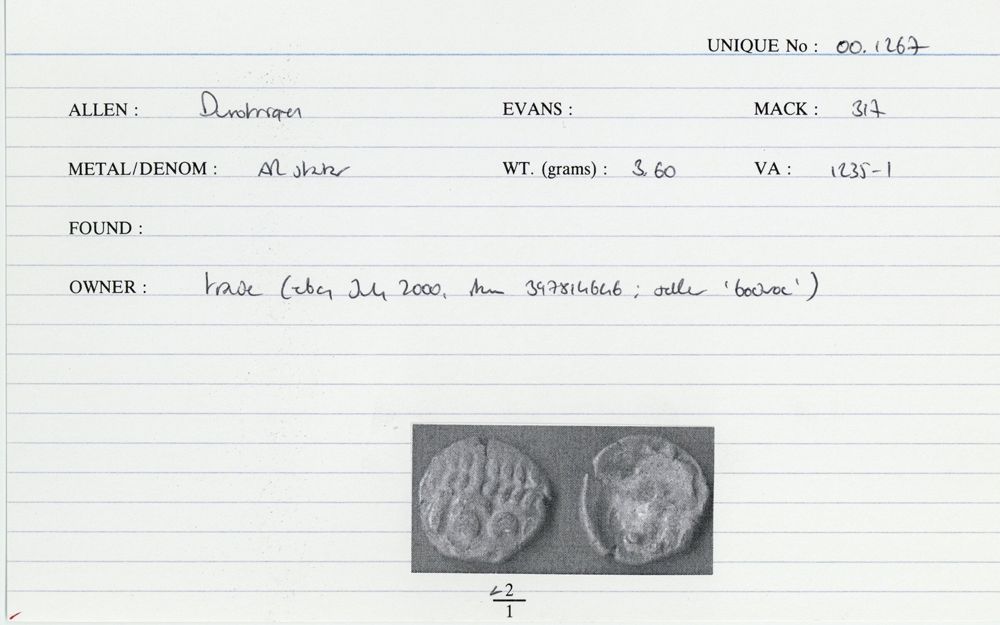 UNIQUE No : 00.1267
ALLEN : Durotrigan EVANS : MACK : 317
METAL/DENOM : AR stater WT. (grams) : 3.60 VA : 1235-1
FOUND :
OWNER : trade (ebay July 2000, item 397814646 ; seller ' ')
<2
1